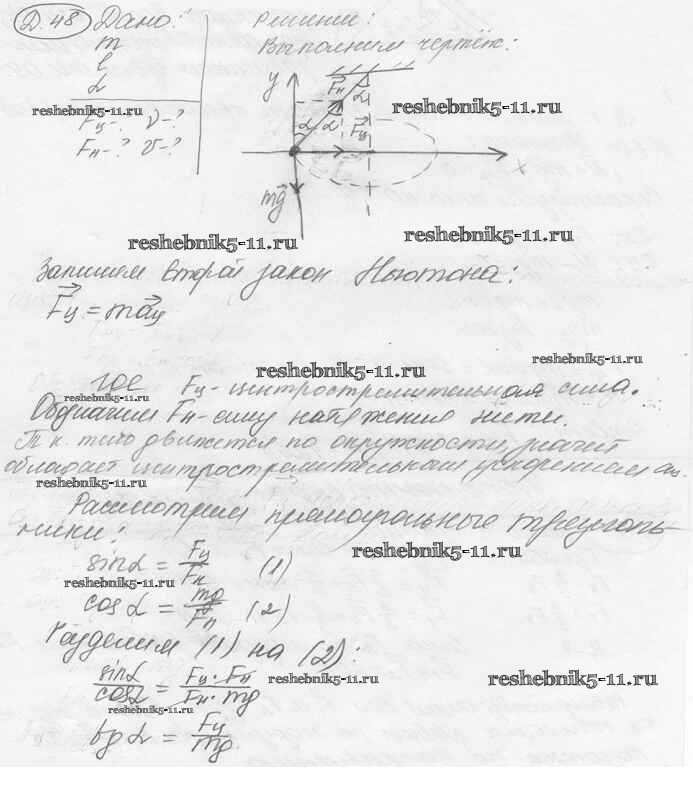 Д.48 Дано: Решение:
m Выполним чертёж:
l
α
reshebnik5-11.ru
Fц-? ν-?
Fн-? v-?
y
Fн
α
α α
Fц
x
mg
reshebnik5-11.ru
reshebnik5-11.ru
reshebnik5-11.ru
Запишем второй закон Ньютона:
Fц = maц
reshebnik5-11.ru
reshebnik5-11.ru
где Fц - центростремительная сила.
reshebnik5-11.ru
Обозначим Fн - силу натяжения нити.
Т.к. тело движется по окружности, значит
обладает центростремительным ускорением aц.
reshebnik5-11.ru
Рассмотрим прямоугольные треуголь-
ники:
reshebnik5-11.ru
sinα = Fц/Fн (1)
reshebnik5-11.ru
cosα = mg/Fн (2)
Разделим (1) на (2):
sinα/cosα = Fц·Fн/Fн·mg
reshebnik5-11.ru
reshebnik5-11.ru
reshebnik5-11.ru
tgα = Fц/mg